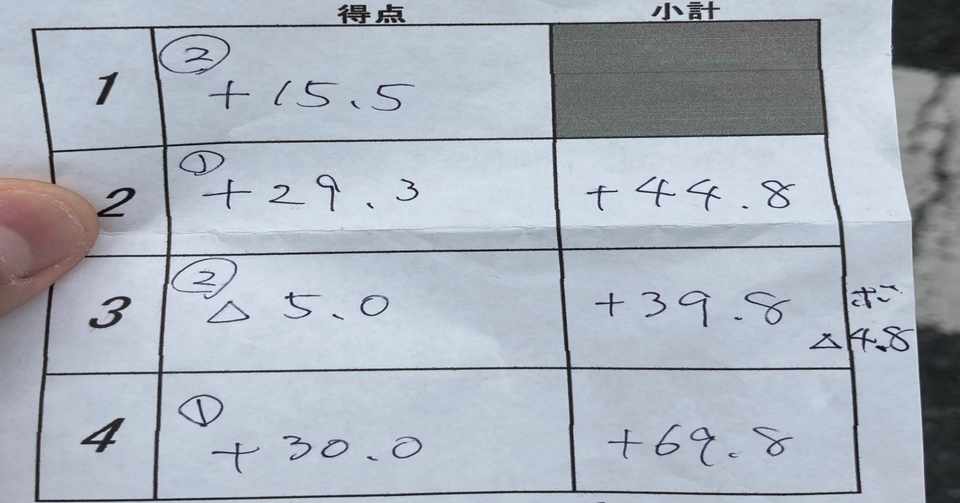 得点 小計
1 ② +15.5
2 ① +29.3 +44.8
3 ② △ 5.0 +39.8
△4.8
4 ① +30.0 +69.8